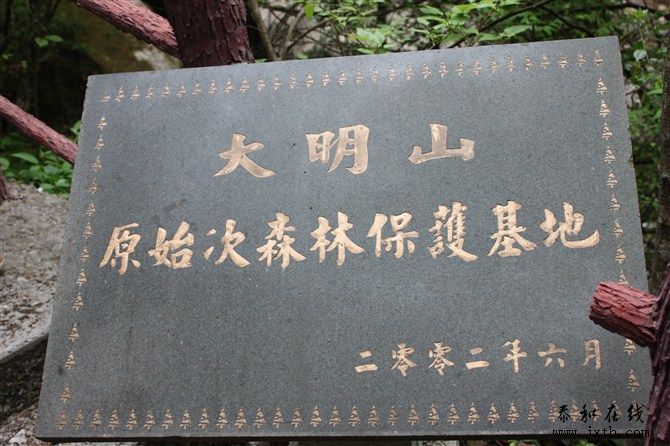 大明山
原始次森林保護基地
二零零二年六月
泰和在线
www.jxth.com